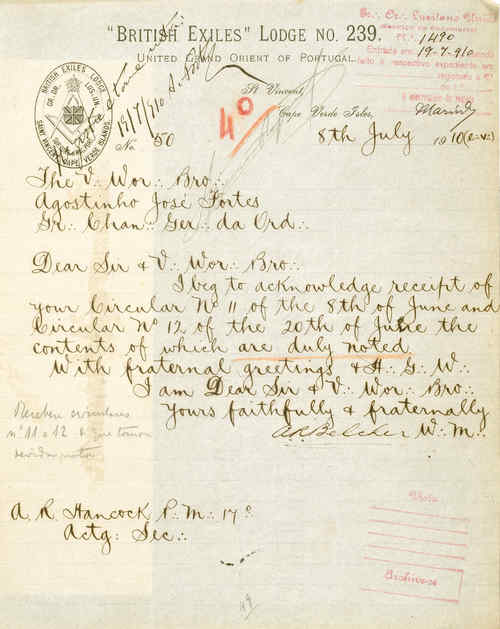 "BRITISH EXILES" LODGE NO. 239,
UNITED GRAND ORIENT OF PORTUGAL.
Gr∴ Or∴ Lusitano Unido
Nº 1490
Entrada em 19-7-910
BRITISH EXILES LODGE
SAINT VINCENT, CAPE VERDE ISLANDS.
19/7/910
4º
St Vincent,
Cape Verde Isles,
No. 50
8th July 1910 (e∴v∴)
The V∴ Wor∴ Bro∴
Agostinho José Fortes
Gr∴ Chan∴ Ger∴ da Ord∴
Dear Sir & V∴ Wor∴ Bro∴
I beg to acknowledge receipt of
your Circular Nº 11 of the 8th of June and
Circular Nº 12 of the 20th of June the
contents of which are duly noted
With fraternal greetings & H∴ G∴ W∴
I am Dear Sir & V∴ Wor∴ Bro∴
Yours faithfully & fraternally
A R Belcher W∴ M∴
Recebeu circulares
nº 11 e 12 e que tomou
A. R. Hancock P∴ M∴ 17º
Actg: Sec∴
Visto
Archive-se
49